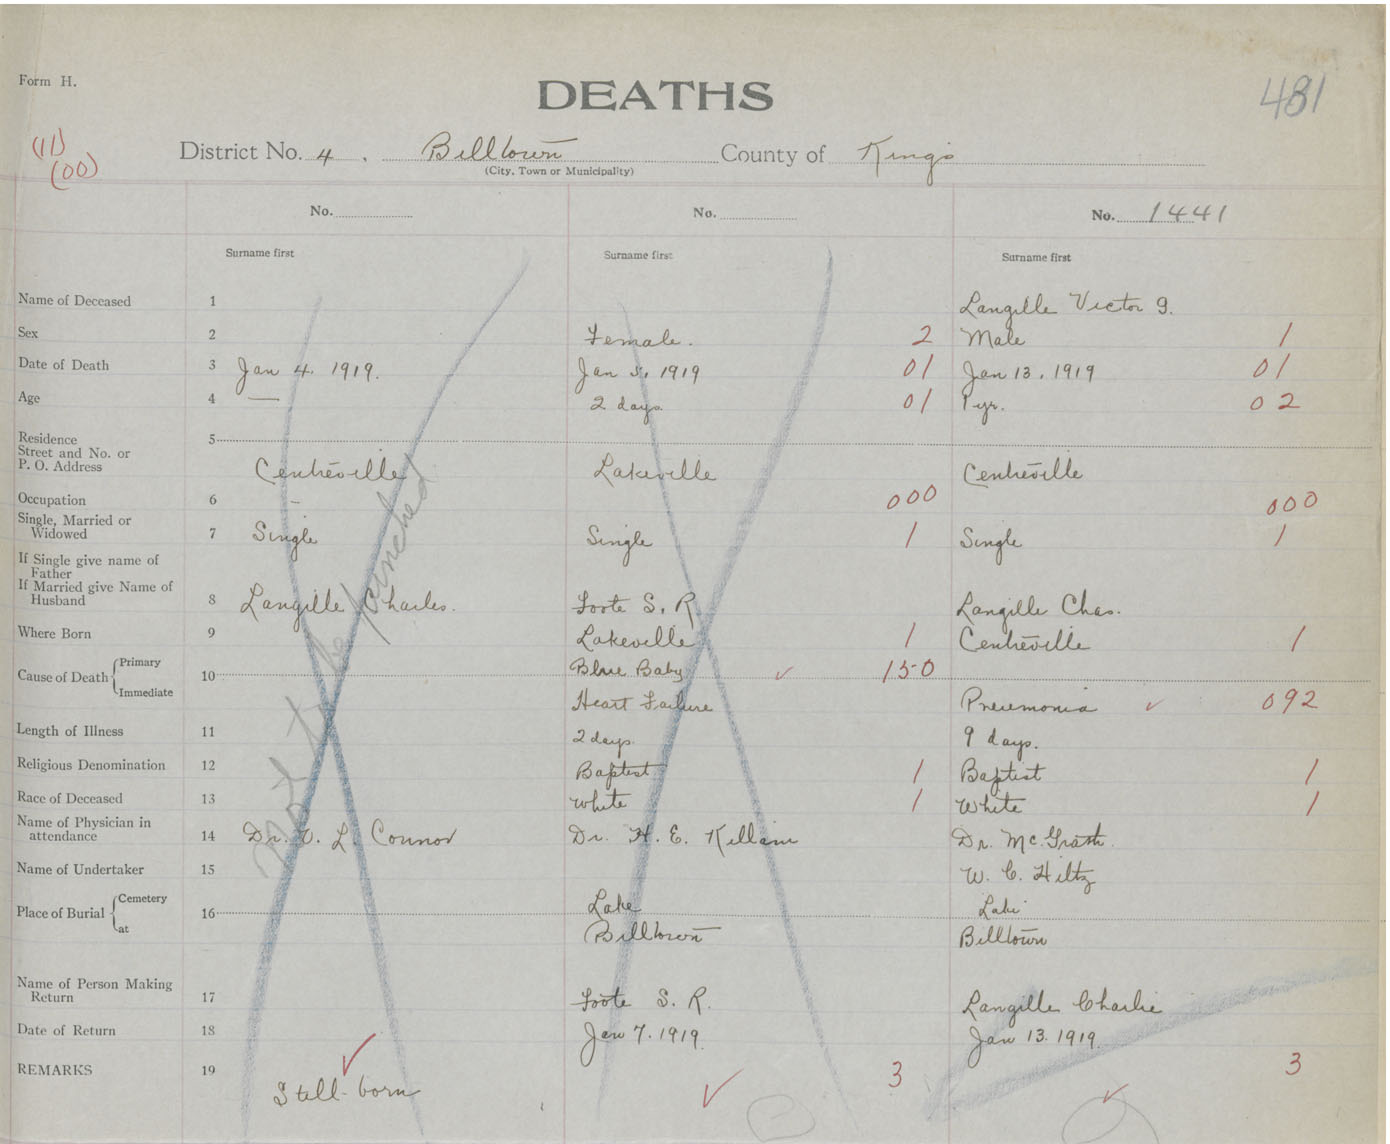 Form H.
DEATHS
481
(11)
(00)
District No. 4. Billtown County of Kings
(City, Town or Municipality)
No. No. No. 1441
Surname first Surname first Surname first
Name of Deceased 1 Langille Victor G.
Sex 2 Female. 2 Male 1
Date of Death 3 Jan 4. 1919. Jan 5, 1919 01 Jan 13. 1919 01
Age 4 — 2 days. 01 1 yr. 02
Residence 5
Street and No. or
P. O. Address Centreville Lakeville Centreville
Occupation 6 - 000 000
Single, Married or
Widowed 7 Single Single 1 Single 1
If Single give name of
Father
If Married give Name of
Husband 8 Langille Charles. Foote S. R Langille Chas.
Where Born 9 Lakeville 1 Centreville 1
Cause of Death Primary 10 Blue Baby ✓ 150
Immediate Heart Failure Pneumonia ✓ 092
Length of Illness 11 2 days. 9 days.
Religious Denomination 12 Baptist 1 Baptist 1
Race of Deceased 13 White 1 White 1
Name of Physician in
attendance 14 Dr. L. Connor Dr. H. E. Killam Dr. McGrath.
Name of Undertaker 15 W. C. Hiltz
Place of Burial Cemetery 16 Lake Lake
at Billtown Billtown
Name of Person Making
Return 17 Foote S. R. Langille Charlie
Date of Return 18 Jan 7. 1919. Jan 13. 1919.
REMARKS 19 ✓ Still-born ✓ 3 ✓ 3
Not to be punched